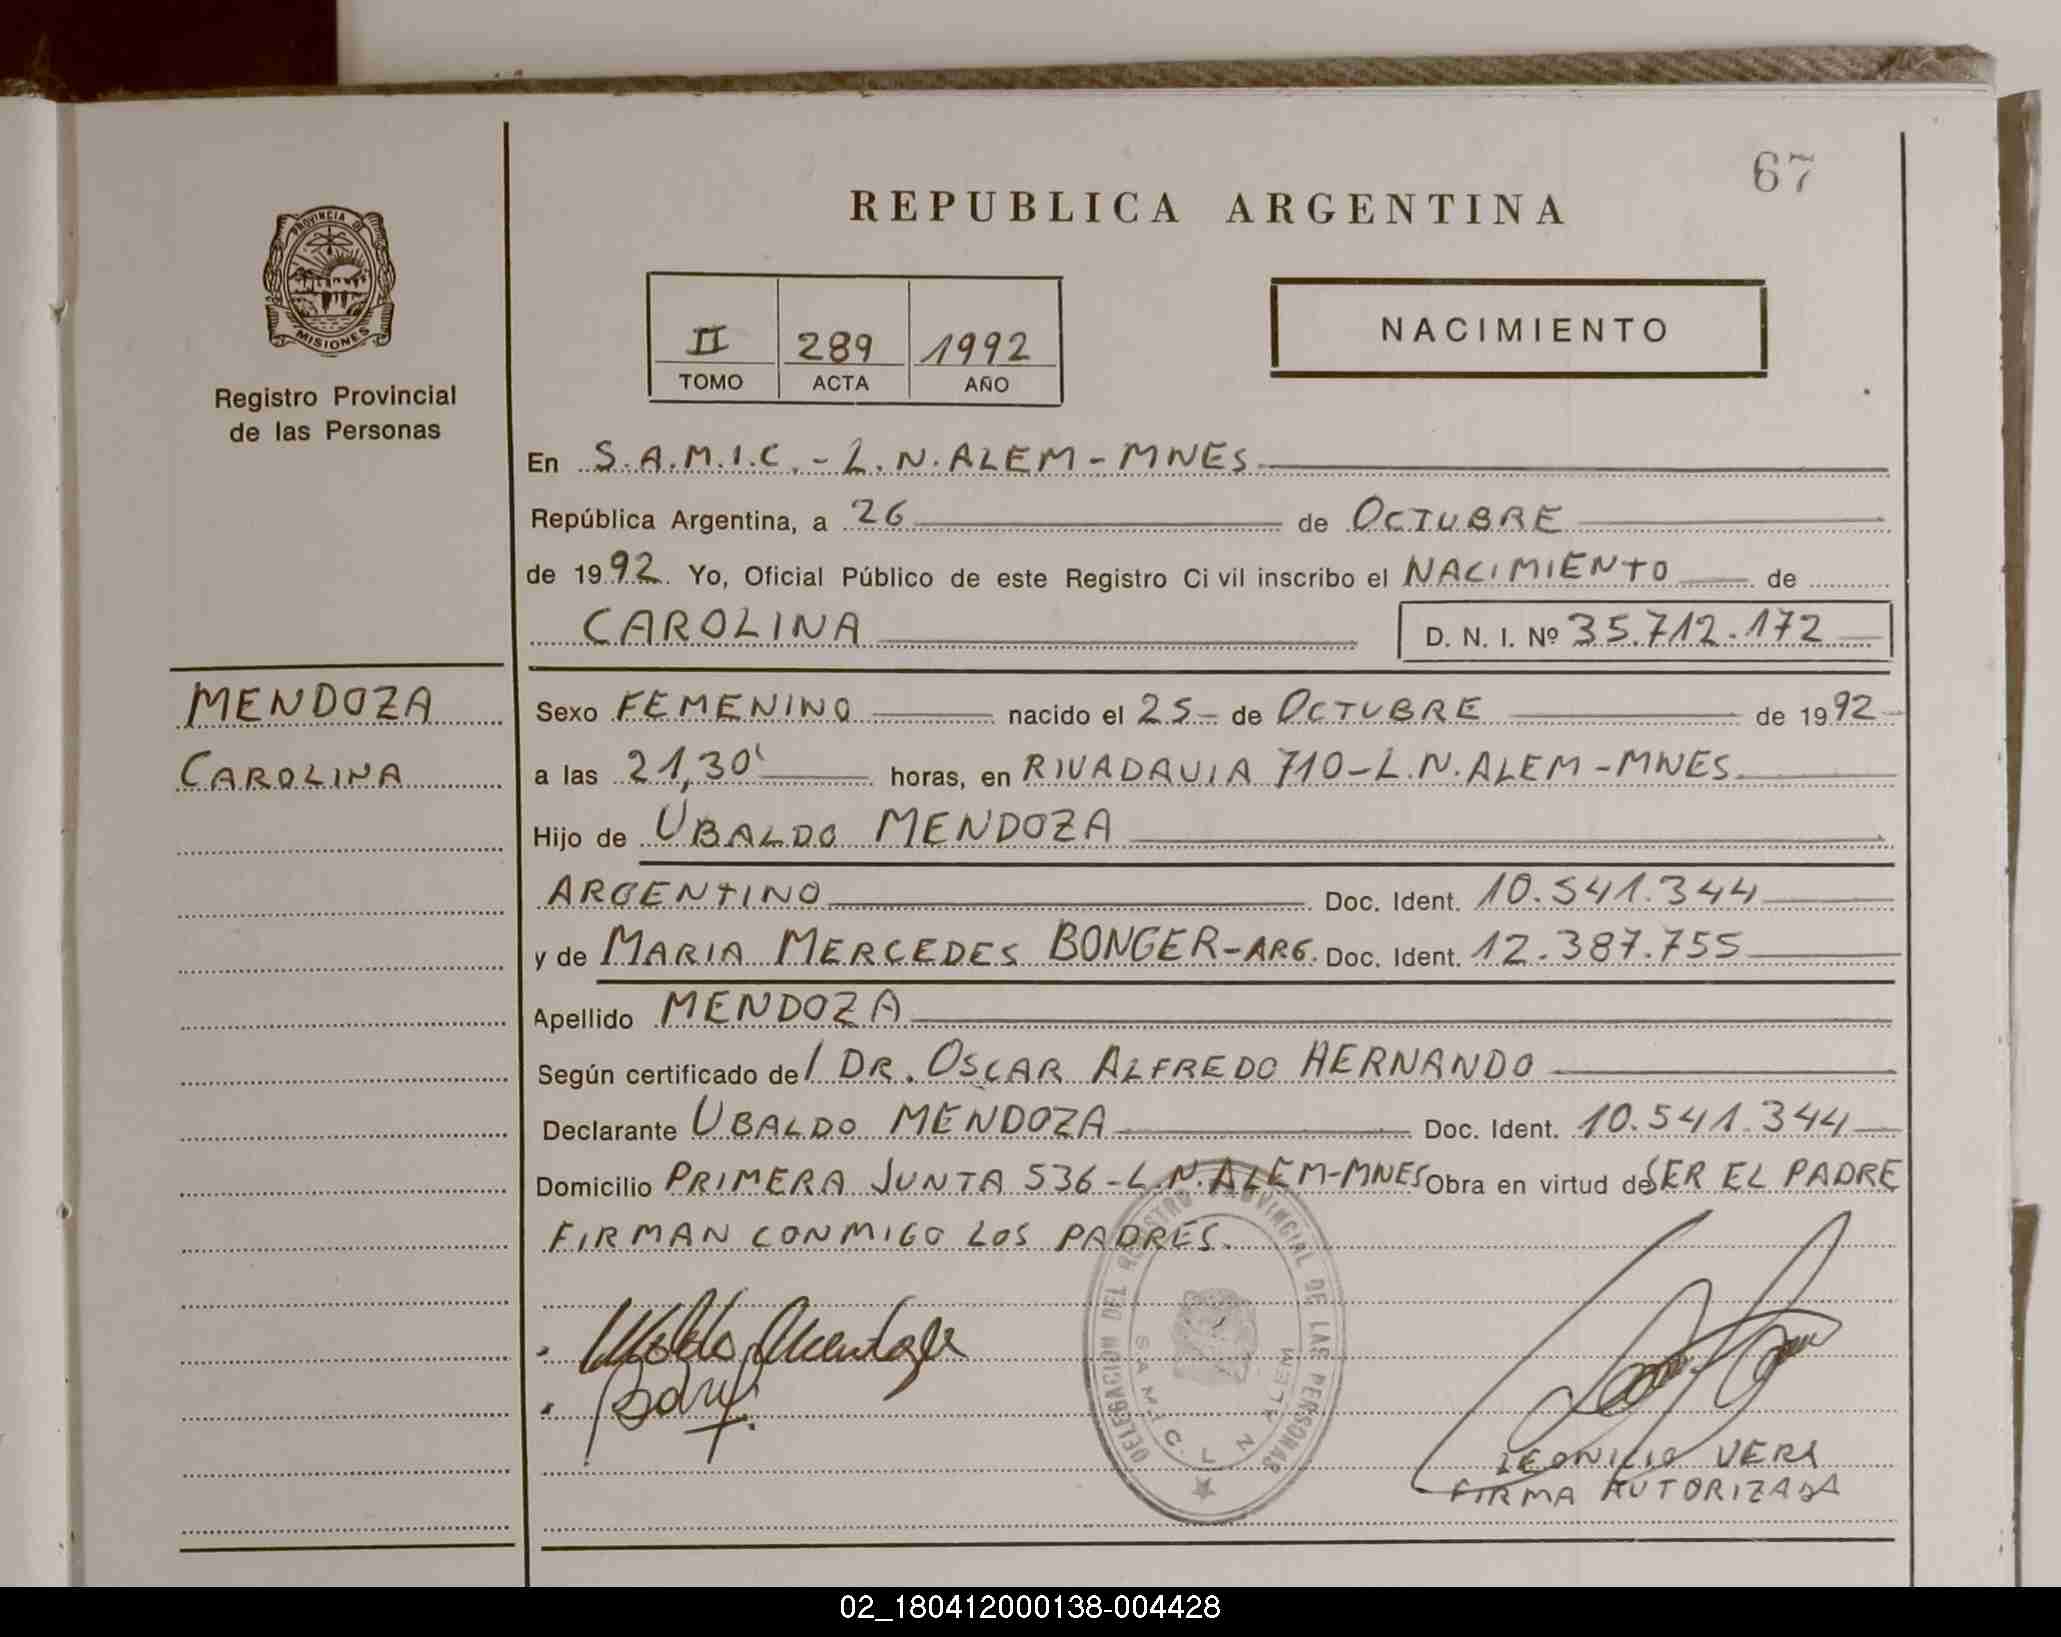 67
REPUBLICA ARGENTINA
PROVINCIA DE
MISIONES
Registro Provincial
de las Personas
II 289 1992
TOMO ACTA AÑO
NACIMIENTO
En S.A.M.I.C. - L.N. ALEM - MNES
República Argentina, a 26 de OCTUBRE
de 1992. Yo, Oficial Público de este Registro Ci vil inscribo el NACIMIENTO de
CAROLINA D. N. I. Nº 35.712.172
MENDOZA
CAROLINA
Sexo FEMENINO nacido el 25 - de OCTUBRE de 1992 -
a las 21,30' horas, en RIVADAVIA 710 - L.N. ALEM - MNES
Hijo de UBALDO MENDOZA
ARGENTINO Doc. Ident. 10.541.344
y de MARIA MERCEDES BONGER - ARG. Doc. Ident. 12.387.755
Apellido MENDOZA
Según certificado del DR. OSCAR ALFREDO HERNANDO
Declarante UBALDO MENDOZA Doc. Ident. 10.541.344
Domicilio PRIMERA JUNTA 536 - L.N. ALEM - MNES Obra en virtud de SER EL PADRE
FIRMAN CONMIGO LOS PADRES.
DELEGACION DEL REGISTRO PROVINCIAL DE LAS PERSONAS
S A M I C L N ALEM
LEONILIO VERA
FIRMA AUTORIZADA
02_180412000138-004428